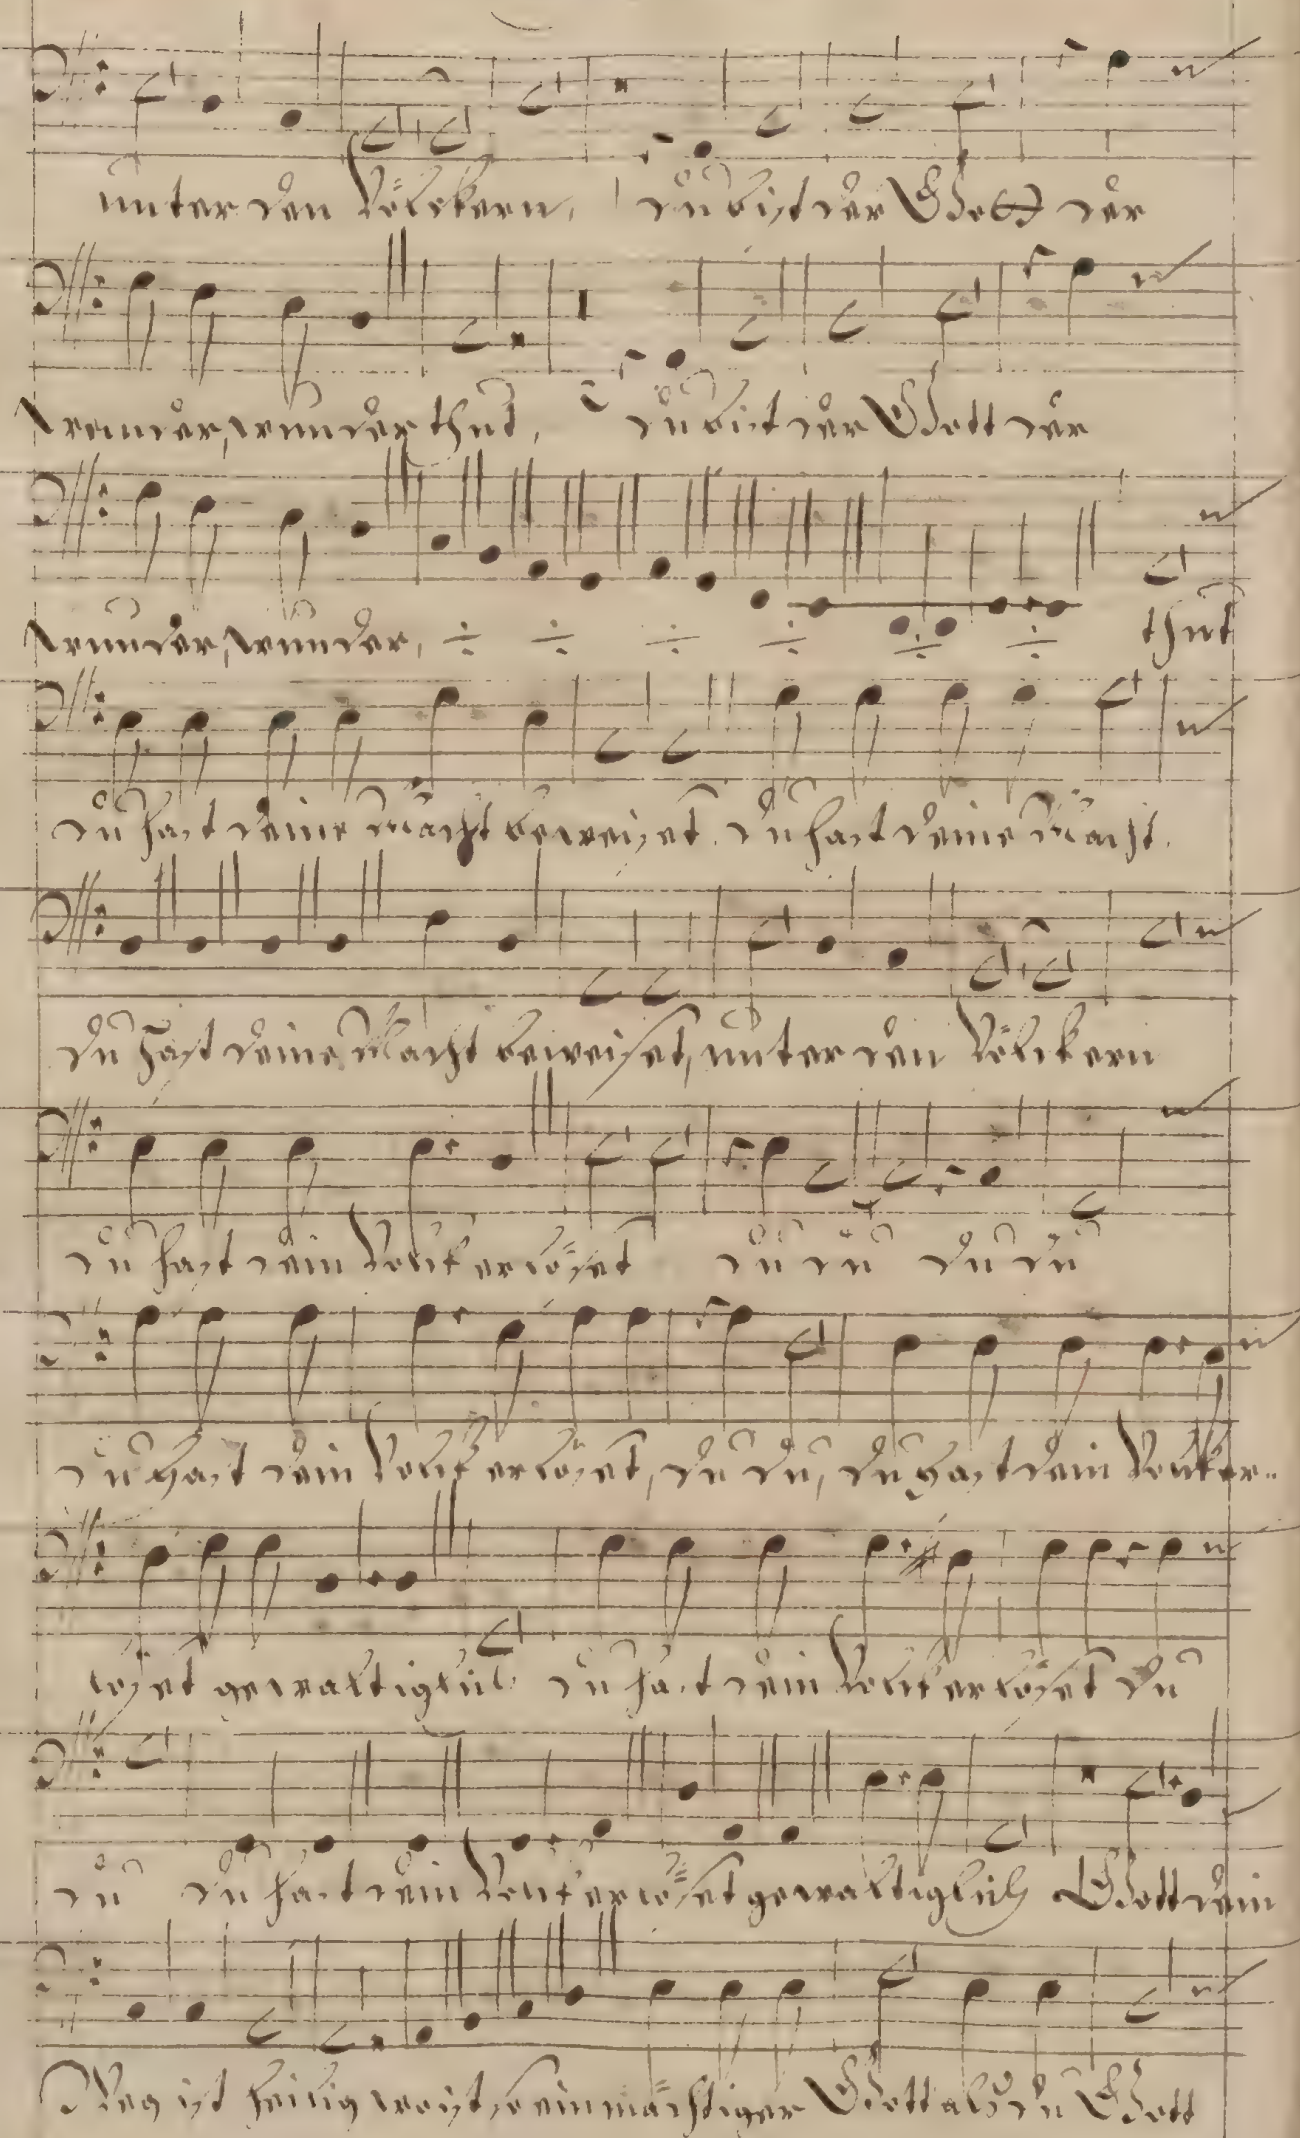 unter den Völckern, du bist der Gott der
wunder, wunder thut, du bist der Gott der
wunder, wunder, ÷ ÷ ÷ ÷ ÷ ÷ thut
du hast deine Macht beweiset. du hast deine Macht.
du hast deine Macht beweiset, unter den Völckern
du hast dein Volck erlöset du du du du
du hast dein Volck erlöset, du du, du hast dein Volck er-
löset gewaltiglich du hast dein Volck erlöset du
du du hast dein Volck erlöset gewaltiglich Gott dein
Weg ist heilig wo ist so ein mächtiger Gott als du Gott